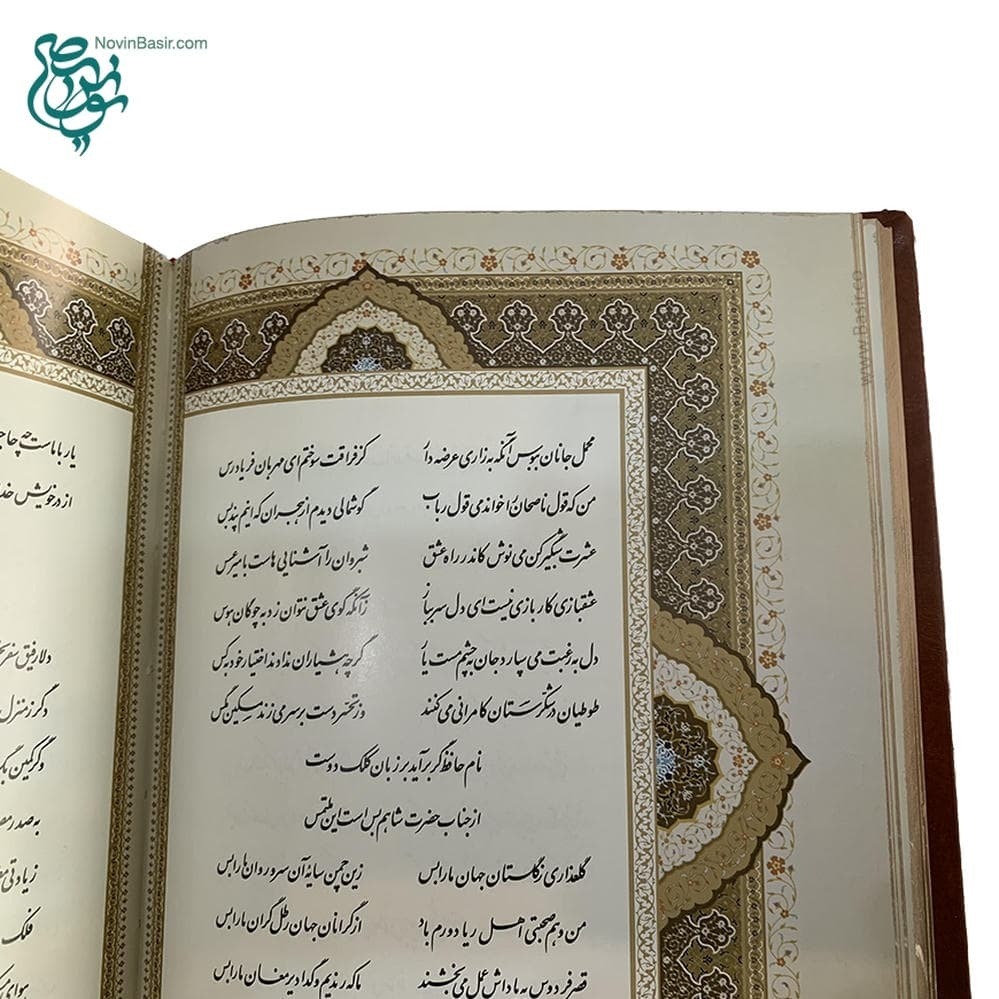 NovinBasir.com
محمل جانان ببوس آنگه به زاری عرضه دار کز فراقت سوختم ای مهربان فریاد رس
من که قول ناصحان را خواندمی قول رباب گوشمالی دیدم از هجران که اینم پند بس
عشرت شبگیر کن می نوش کاندر راه عشق شبروان را آشنایی هاست با میر عسس
عشقبازی کار بازی نیست ای دل سر بباز زآنکه گوی عشق نتوان زد به چوگان هوس
دل به رغبت می سپارد جان به چشم مست یار گرچه هشیاران ندادند اختیار خود به کس
طوطیان در شکرستان کامرانی می کنند وز تحسر دست بر سر می زند مسکین مگس
نام حافظ گر برآید بر زبان کلک دوست
از جناب حضرت شاهم بس است این ملتمس
گلعذاری ز گلستان جهان ما را بس زین چمن سایه آن سرو روان ما را بس
من و هم صحبتی اهل ریا دورم باد از گرانان جهان رطل گران ما را بس
قصر فردوس به پاداش عمل می بخشند ما که رندیم و گدا دیر مغان ما را بس
یار با ماست چه
از در خویش
دلا رفیق سفر
دگر ز منزل
وگر کمین
به صدر
زیادتی
فلک
هوای